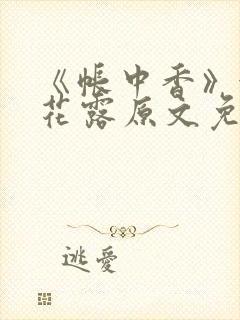 《帐中香》
花露原文免
逃愛